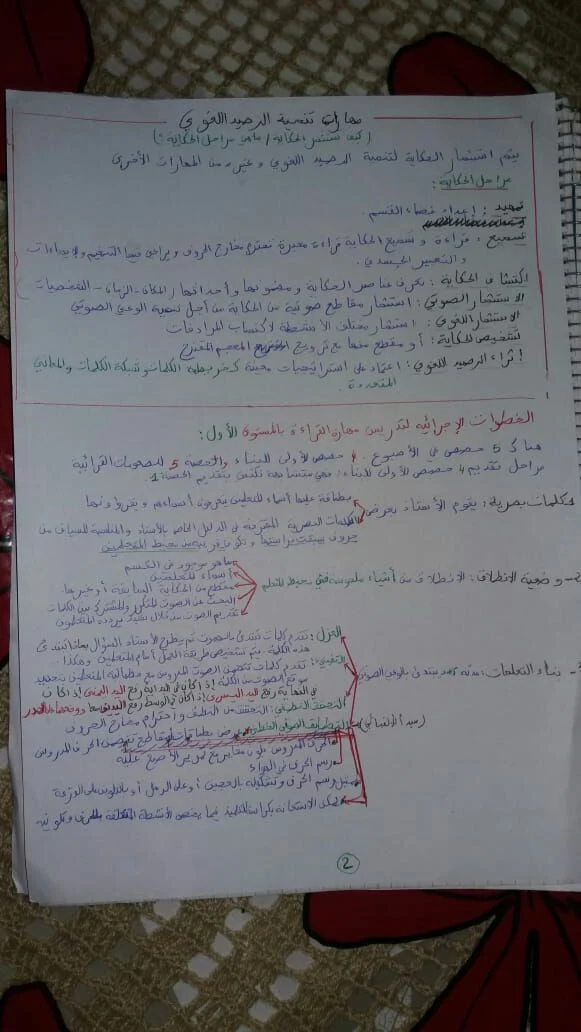 مهارات تنمية الرصيد اللغوي
( كيف نستثمر الحكاية / ماهي مراحل الحكاية ؟ )
يتم استثمار الحكاية لتنمية الرصيد اللغوي و غيره من المهارات الأخرى
مراحل الحكاية :
تمهيد : إعداد فضاء القسم .
تسميع : قراءة و تسميع الحكاية قراءة معبرة تحترم مخارج الحروف و يراعى فيها التنغيم والإيماءات
و التعبير الجسدي .
اكتشاف الحكاية : تعرف عناصر الحكاية و مضمونها و أحداثها ( المكان - الزمان - الشخصيات )
الاستثمار الصوتي : استثمار مقاطع صوتية من الحكاية من أجل تنمية الوعي الصوتي
الاستثمار اللغوي : استثمار مختلف الأنشطة لاكتساب المرادفات
تشخيص الحكاية : أو مقطع منها مع ترويج المعجم المقترح
إثراء الرصيد اللغوي : اعتماد على استراتيجيات معينة كخريطة الكلمات و شبكة الكلمات والمعاني
المتعددة .
الخطوات الإجرائية لتدريس مهارة القراءة بالمستوى الأول :
هناك 5 حصص في الأسبوع . 4 حصص الأولى للبناء والحصة 5 للمقروئية
مراحل تقديم 4 حصص الأولى للبناء : فهي متشابهة نكتفي بتقديم الحصة 1 .
كلمات بصرية : يقوم الأستاذ بعرض
بطاقة عليها أسماء المتعلمين يتعرفون أسماءهم و يقرؤونها
الكلمات البصرية المقترحة في الدليل الخاص بالأستاذ والمناسبة للسياق من
حروف سبقت دراستها و تكون قريبة من محيط المتعلمين
2- وضعية الانطلاق : الانطلاق من أشياء ملموسة في محيط المتعلم
ماهو موجود في القسم
أسماء المتعلمين
مقطع من الحكاية السابقة أو غيرها
البحث عن الصوت المتكرر والمشترك بين الكلمات
تقديم الصوت من خلال يردده المتعلمون
3- بناء التعلمات :
العزل : تقدم كلمات تبتدئ بالصوت ثم يطرح الأستاذ السؤال بماذا تبتدئ
هذه الكلمة . يتم تشخيص طريقة العمل أمام المتعلمين وهكذا .
التعيين : تقدم كلمات تتضمن الصوت المدروس مع مطالبة المتعلمين بتحديد
موقع الصوت من الكلمة إذا كان في البداية رفع اليد اليمنى إذا كان
في النهاية رفع اليد اليسرى إذا كان في الوسط
التحقق من النطق و احترام مخارج الحروف
( مبدأ الألفبائي )
عرض بطاقات لمقاطع تتضمن الحرف المدروس
الحرف المدروس ملون مغاير مع تمرير الأصبع عليه
رسم الحرف في الهواء
رسم الحرف و تشكيله بالعجين أو على الرمل أو بالتلوين على الورقة
يمكن الاستعانة بكراسة التلميذ فيما يخص الأنشطة المتعلقة بالحرف و تلوينه
2